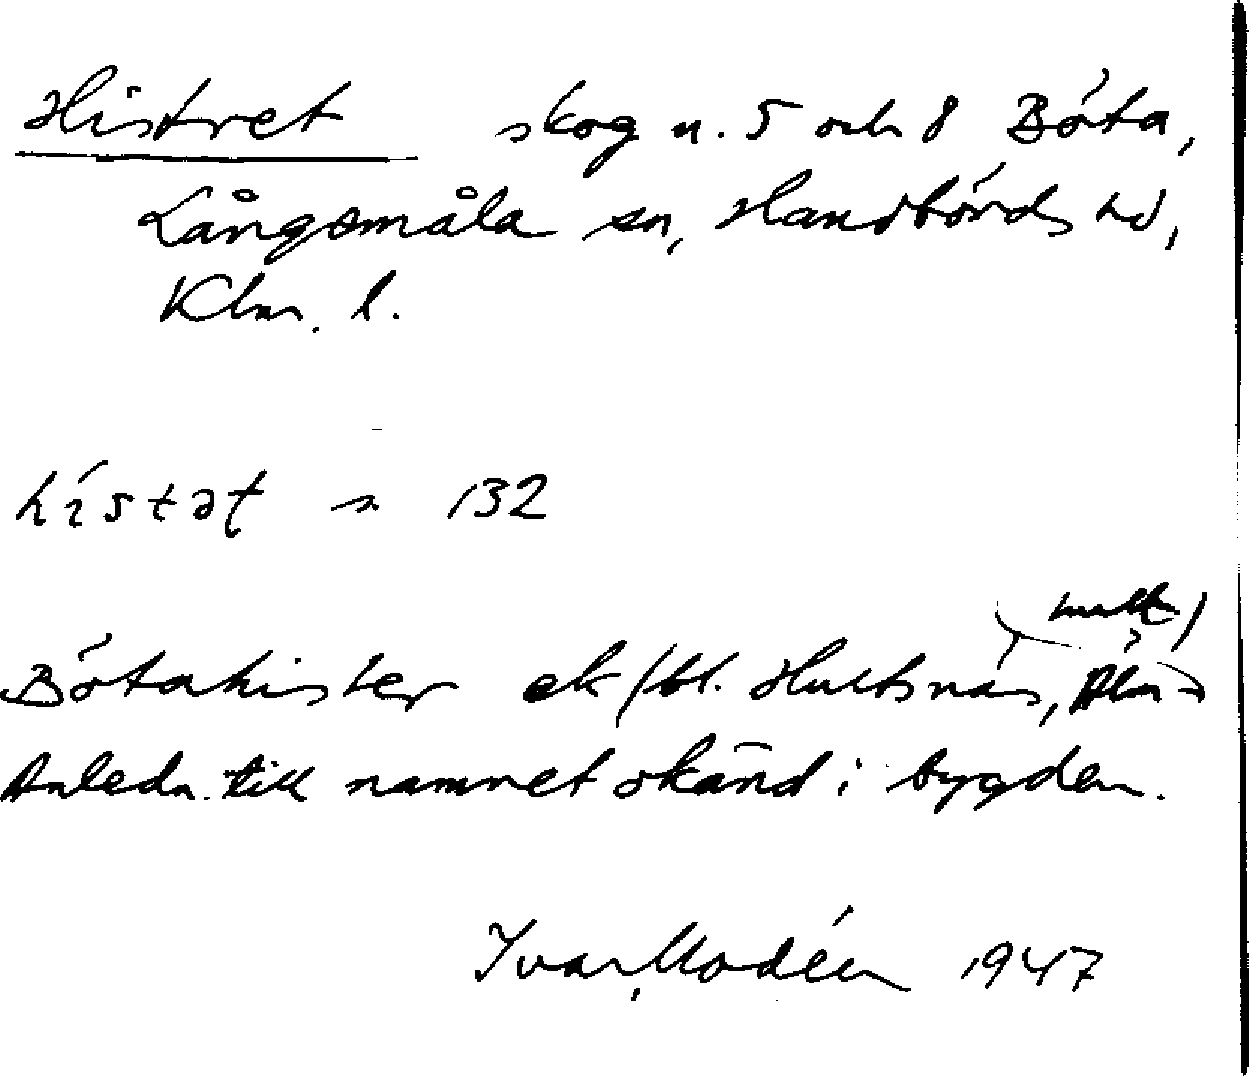 Histret skog n. 5 och 8 Böta,
Långsmåla sn, Handbörds hd,
Klm. l.
histət n 132
Bötahister ek bl. Hultsnäs,
Anledn. till namnet okänd i bygden.
Ivar Modéer 1947